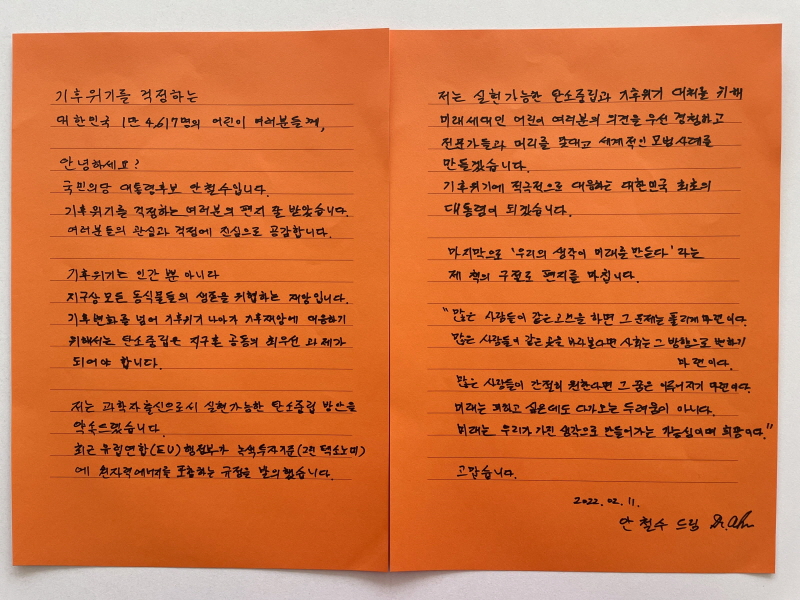 기후위기를 걱정하는
대한민국 1만 4,617명의 어린이 여러분들께,
안녕하세요?
국민의당 대통령후보 안철수입니다.
기후위기를 걱정하는 여러분의 편지 잘 받았습니다.
여러분들의 관심과 걱정에 진심으로 공감합니다.
기후위기는 인간 뿐 아니라
지구상 모든 동식물들의 생존을 위협하는 재앙입니다.
기후변화를 넘어 기후위기 나아가 기후재앙에 대응하기
위해서는 탄소중립은 지구촌 공동의 최우선 과제가
되어야 합니다.
저는 과학자출신으로서 실현가능한 탄소중립 방안을
약속드렸습니다.
최근 유럽연합(EU) 행정부가 녹색투자기준(그린 택소노미)
에 원자력에너지를 포함하는 규정을 발의했습니다.
저는 실현가능한 탄소중립과 기후위기 대처를 위해
미래세대인 어린이 여러분의 의견을 우선 경청하고
전문가들과 머리를 맞대고 세계적인 모범사례를
만들겠습니다.
기후위기에 적극적으로 대응하는 대한민국 최초의
대통령이 되겠습니다.
마지막으로 '우리의 생각이 미래를 만든다' 라는
제 책의 구절로 편지를 마칩니다.
"많은 사람들이 같은 고민을 하면 그 문제는 풀리게 마련이다.
많은 사람들이 같은 곳을 바라본다면 사회는 그 방향으로 변하기
마련이다.
많은 사람들이 간절히 원한다면 그 꿈은 이루어지기 마련이다.
미래는 피하고 싶은데도 다가오는 두려움이 아니다.
미래는 우리가 가진 생각으로 만들어가는 가능성이며 희망이다."
고맙습니다.
2022. 02. 11.
안철수 드림